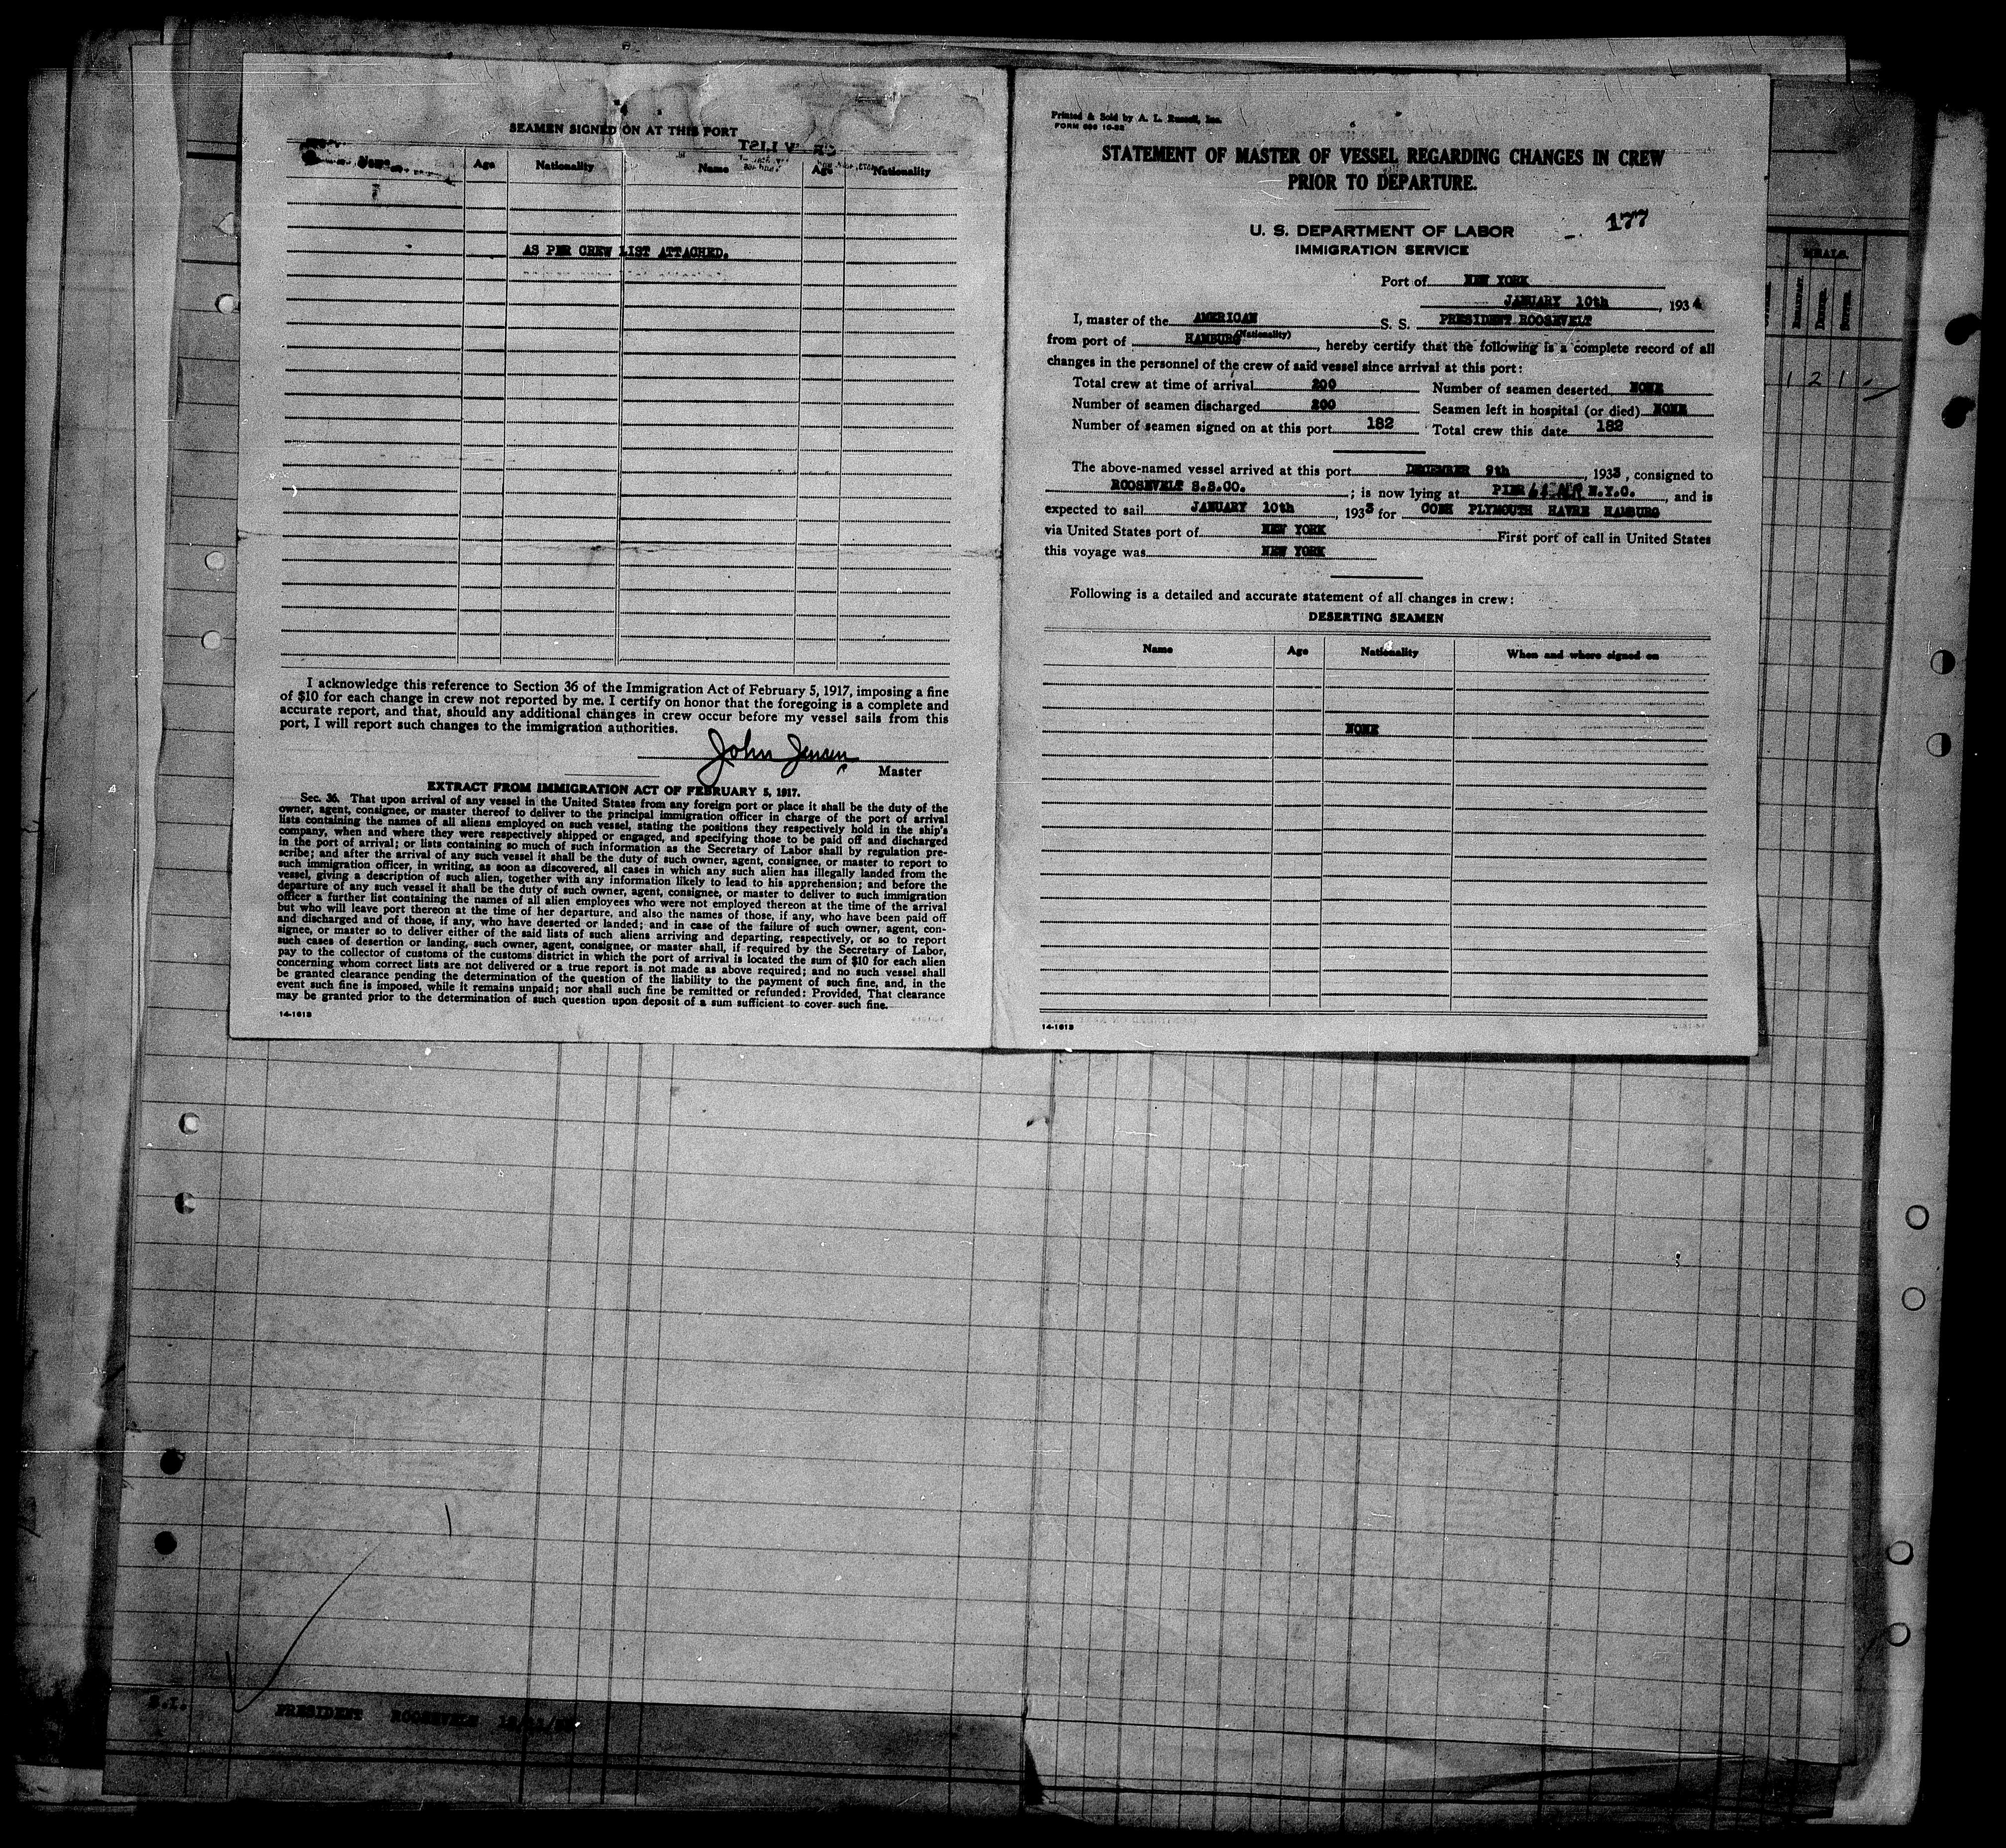 SEAMEN SIGNED ON AT THIS PORT
Name Age Nationality Name Age Nationality
AS PER CREW LIST ATTACHED.
I acknowledge this reference to Section 36 of the Immigration Act of February 5, 1917, imposing a fine
of $10 for each change in crew not reported by me. I certify on honor that the foregoing is a complete and
accurate report, and that, should any additional changes in crew occur before my vessel sails from this
port, I will report such changes to the immigration authorities.
John Jensen
Master
EXTRACT FROM IMMIGRATION ACT OF FEBRUARY 5, 1917.
Sec. 36. That upon arrival of any vessel in the United States from any foreign port or place it shall be the duty of the
owner, agent, consignee, or master thereof to deliver to the principal immigration officer in charge of the port of arrival
lists containing the names of all aliens employed on such vessel, stating the positions they respectively hold in the ship's
company, when and where they were respectively shipped or engaged, and specifying those to be paid off and discharged
in the port of arrival; or lists containing so much of such information as the Secretary of Labor shall by regulation pre-
scribe; and after the arrival of any such vessel it shall be the duty of such owner, agent, consignee, or master to report to
such immigration officer, in writing, as soon as discovered, all cases in which any such alien has illegally landed from the
vessel, giving a description of such alien, together with any information likely to lead to his apprehension; and before the
departure of any such vessel it shall be the duty of such owner, agent, consignee, or master to deliver to such immigration
officer a further list containing the names of all alien employees who were not employed thereon at the time of the arrival
but who will leave port thereon at the time of her departure, and also the names of those, if any, who have been paid off
and discharged and of those, if any, who have deserted or landed; and in case of the failure of such owner, agent, con-
signee, or master so to deliver either of the said lists of such aliens arriving and departing, respectively, or so to report
such cases of desertion or landing, such owner, agent, consignee, or master shall, if required by the Secretary of Labor,
pay to the collector of customs of the customs district in which the port of arrival is located the sum of $10 for each alien
concerning whom correct lists are not delivered or a true report is not made as above required; and no such vessel shall
be granted clearance pending the determination of the question of the liability to the payment of such fine, and, in the
event such fine is imposed, while it remains unpaid; nor shall such fine be remitted or refunded: Provided, That clearance
may be granted prior to the determination of such question upon deposit of a sum sufficient to cover such fine.
14-1613
Printed & Sold by A. L. Russell, Inc.
STATEMENT OF MASTER OF VESSEL REGARDING CHANGES IN CREW
PRIOR TO DEPARTURE.
177
U. S. DEPARTMENT OF LABOR
IMMIGRATION SERVICE
Port of NEW YORK
JANUARY 10th, 1934
I, master of the AMERICAN S. S. PRESIDENT ROOSEVELT
(Nationality)
from port of HAMBURG, hereby certify that the following is a complete record of all
changes in the personnel of the crew of said vessel since arrival at this port:
Total crew at time of arrival 200 Number of seamen deserted NONE
Number of seamen discharged 200 Seamen left in hospital (or died) NONE
Number of seamen signed on at this port 182 Total crew this date 182
The above-named vessel arrived at this port DECEMBER 9th, 1933, consigned to
ROOSEVELT S.S.CO. ; is now lying at PIER N.Y.C., and is
expected to sail JANUARY 10th, 1933 for COBH PLYMOUTH HAVRE HAMBURG
via United States port of NEW YORK First port of call in United States
this voyage was NEW YORK
Following is a detailed and accurate statement of all changes in crew:
DESERTING SEAMEN
Name Age Nationality When and where signed on
NONE
14-1613
MEALS.
BREAKFAST. DINNER. SUPPER.
1 2 1
PRESIDENT ROOSEVELT